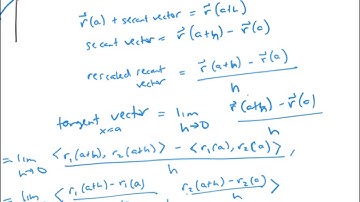 r⃗(a) + secant vector = r⃗(a+h)
secant vector = r⃗(a+h) - r⃗(a)
rescaled secant vector = (r⃗(a+h) - r⃗(a)) / h
tangent vector x=a = lim h→0 (r⃗(a+h) - r⃗(a)) / h
= lim h→0 (<r₁(a+h), r₂(a+h)> - <r₁(a), r₂(a)>) / h ,
= lim <(r₁(a+h) - r₁(a)) / h , (r₂(a+h) - r₂(a)) / h>